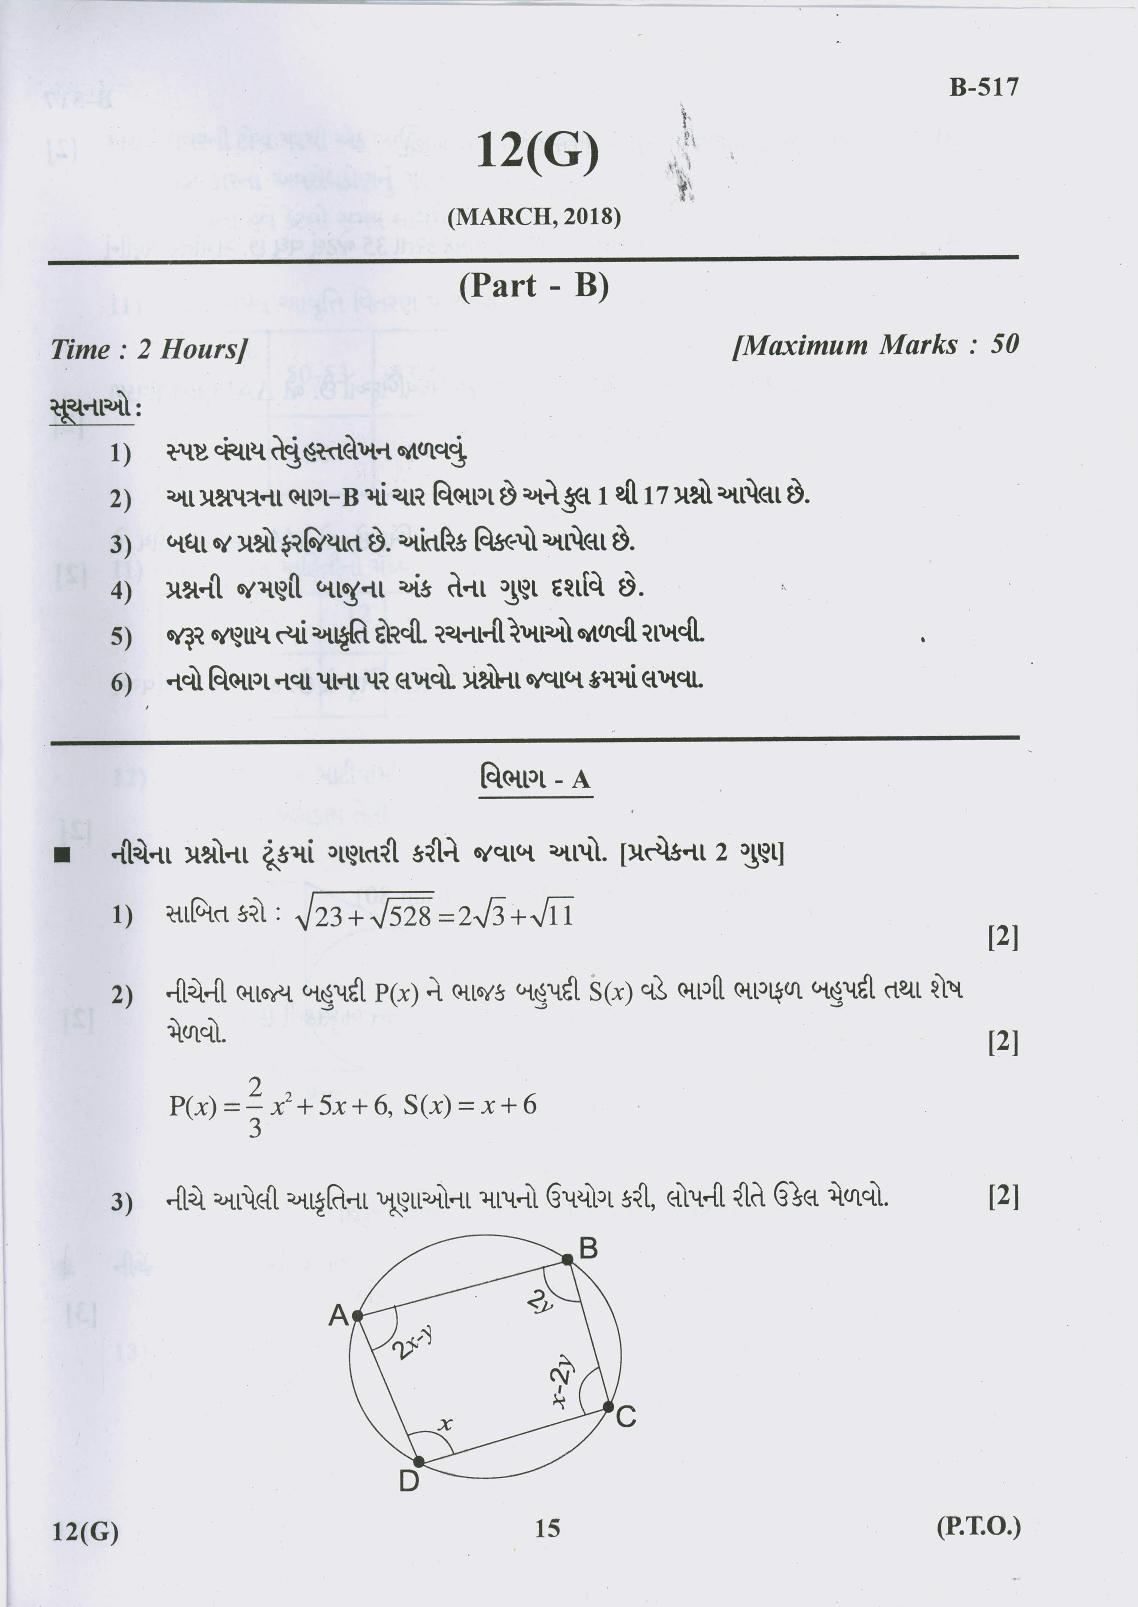 B-517
12(G)
(MARCH, 2018)
(Part - B)
Time : 2 Hours] [Maximum Marks : 50
સૂચનાઓ :
1) સ્પષ્ટ વંચાય તેવું હસ્તલેખન જાળવવું.
2) આ પ્રશ્નપત્રના ભાગ-B માં ચાર વિભાગ છે અને કુલ 1 થી 17 પ્રશ્નો આપેલા છે.
3) બધા જ પ્રશ્નો ફરજિયાત છે. આંતરિક વિકલ્પો આપેલા છે.
4) પ્રશ્નની જમણી બાજુના અંક તેના ગુણ દર્શાવે છે.
5) જરૂર જણાય ત્યાં આકૃતિ દોરવી. રચનાની રેખાઓ જાળવી રાખવી.
6) નવો વિભાગ નવા પાના પર લખવો. પ્રશ્નોના જવાબ ક્રમમાં લખવા.
વિભાગ - A
■ નીચેના પ્રશ્નોના ટૂંકમાં ગણતરી કરીને જવાબ આપો. [પ્રત્યેકના 2 ગુણ]
1) સાબિત કરો : √(23+√528) = 2√3 + √11
[2]
2) નીચેની ભાજ્ય બહુપદી P(x) ને ભાજક બહુપદી S(x) વડે ભાગી ભાગફળ બહુપદી તથા શેષ
મેળવો. [2]
P(x) = 2/3 x² + 5x + 6, S(x) = x + 6
3) નીચે આપેલી આકૃતિના ખૂણાઓના માપનો ઉપયોગ કરી, લોપની રીતે ઉકેલ મેળવો. [2]
B
2y
A
2x-y
x-2y
C
x
D
12(G) 15 (P.T.O.)